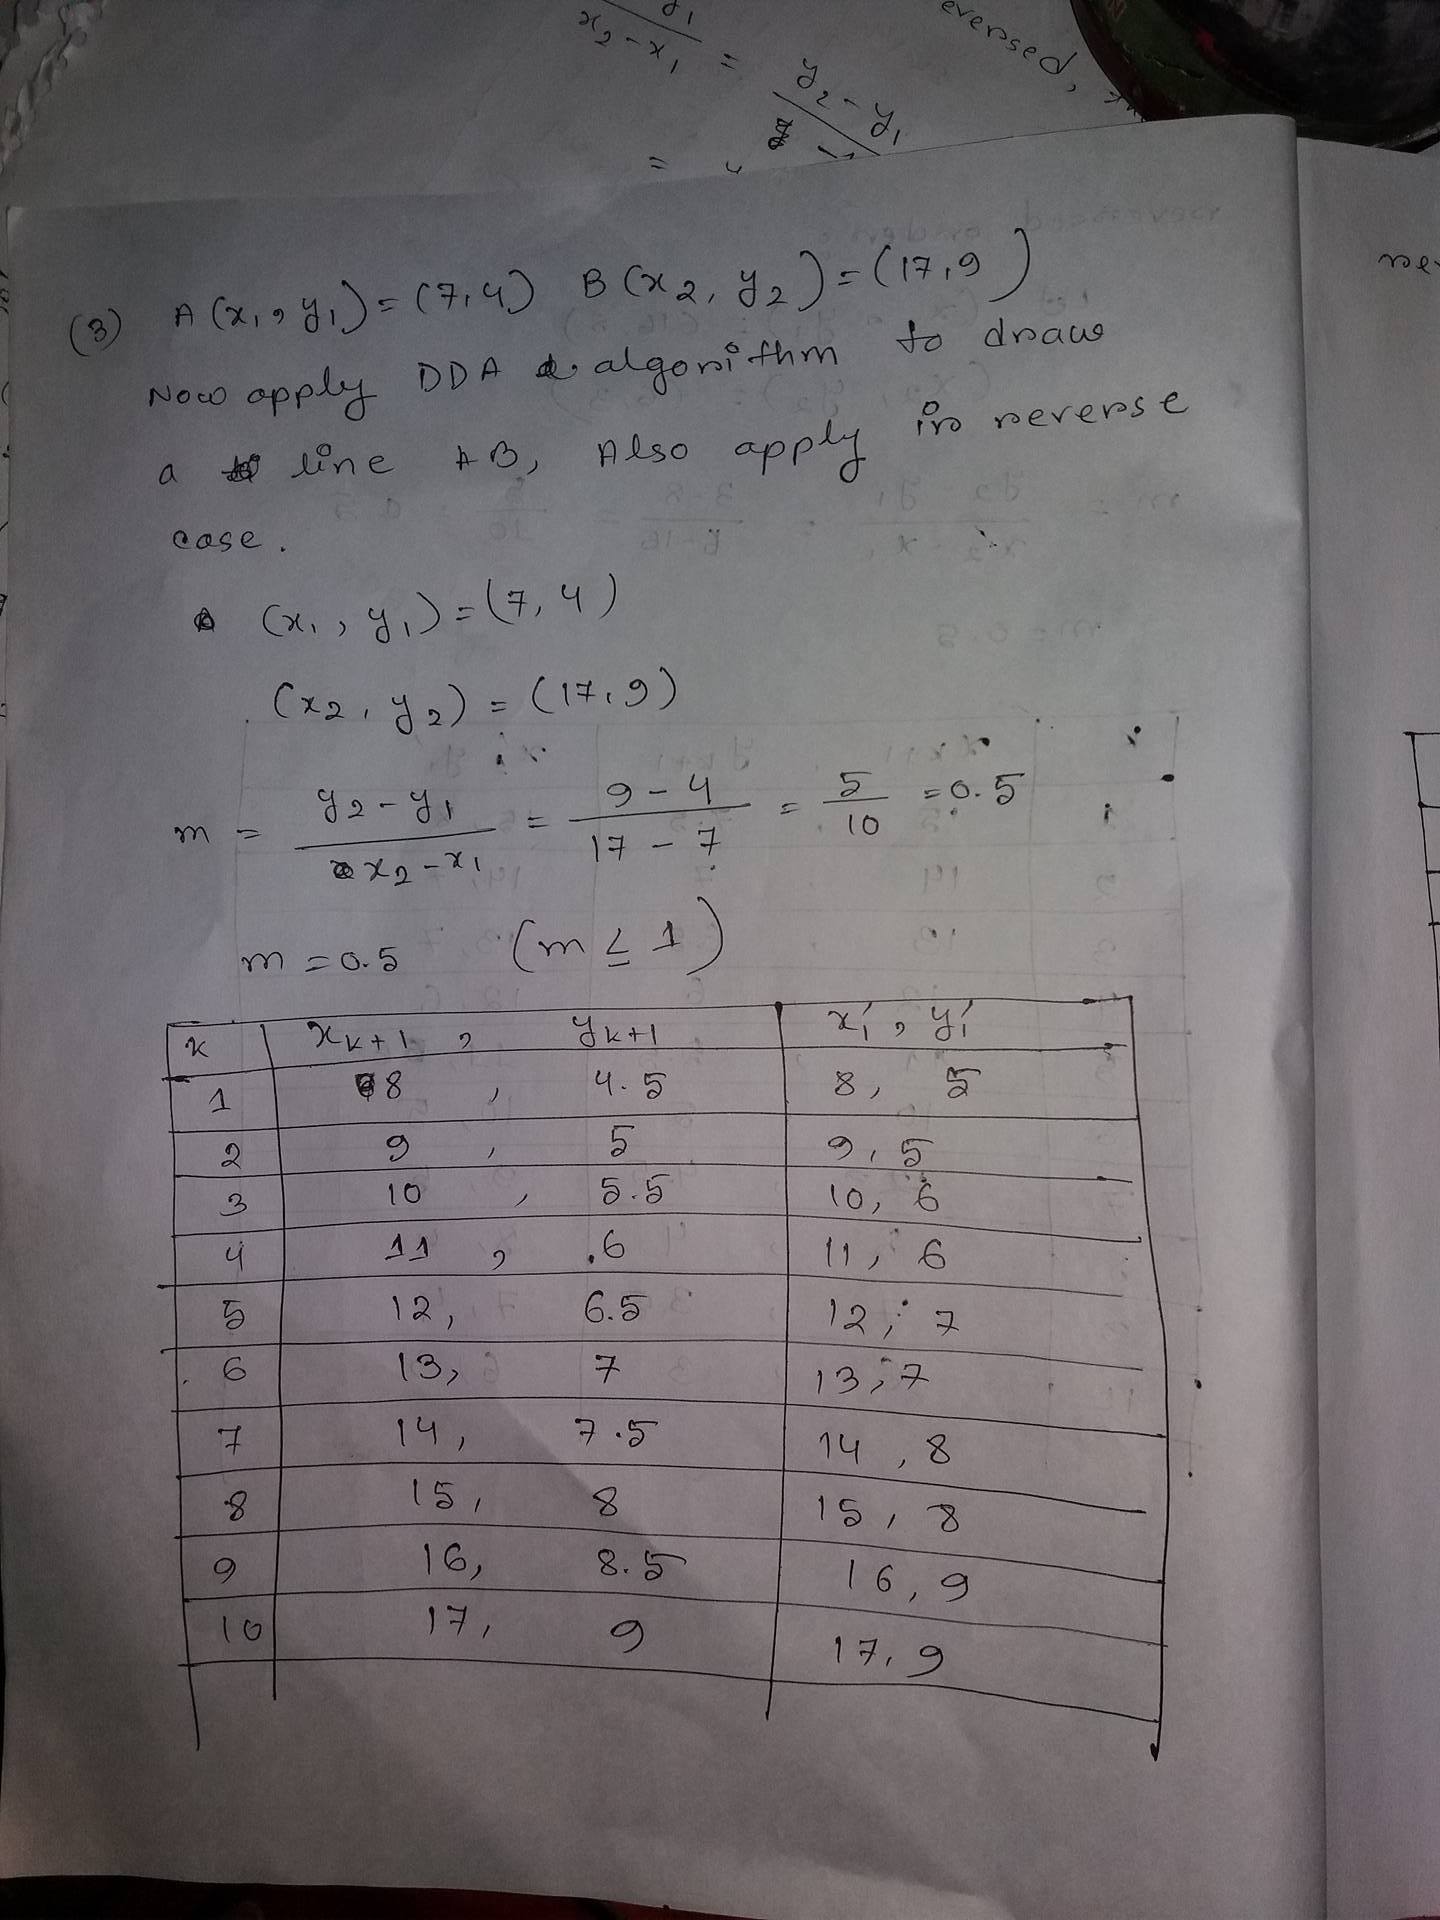 y1
x2 - x1
=
y2 - y1
=
eversed,
(3) A(x1, y1) = (7,4) B(x2, y2) = (17,9)
Now apply DDA algorithm to draw
a line AB, Also apply in reverse
case.
(x1, y1) = (7, 4)
(x2, y2) = (17,9)
m = y2 - y1 / x2 - x1 = 9 - 4 / 17 - 7 = 5 / 10 = 0.5
m = 0.5 (m ≤ 1)
K xk+1 , yk+1 x1', y1'
1 8 , 4.5 8, 5
2 9 , 5 9, 5
3 10 , 5.5 10, 6
4 11 , 6 11, 6
5 12, 6.5 12, 7
6 13, 7 13, 7
7 14, 7.5 14, 8
8 15, 8 15, 8
9 16, 8.5 16, 9
10 17, 9 17, 9